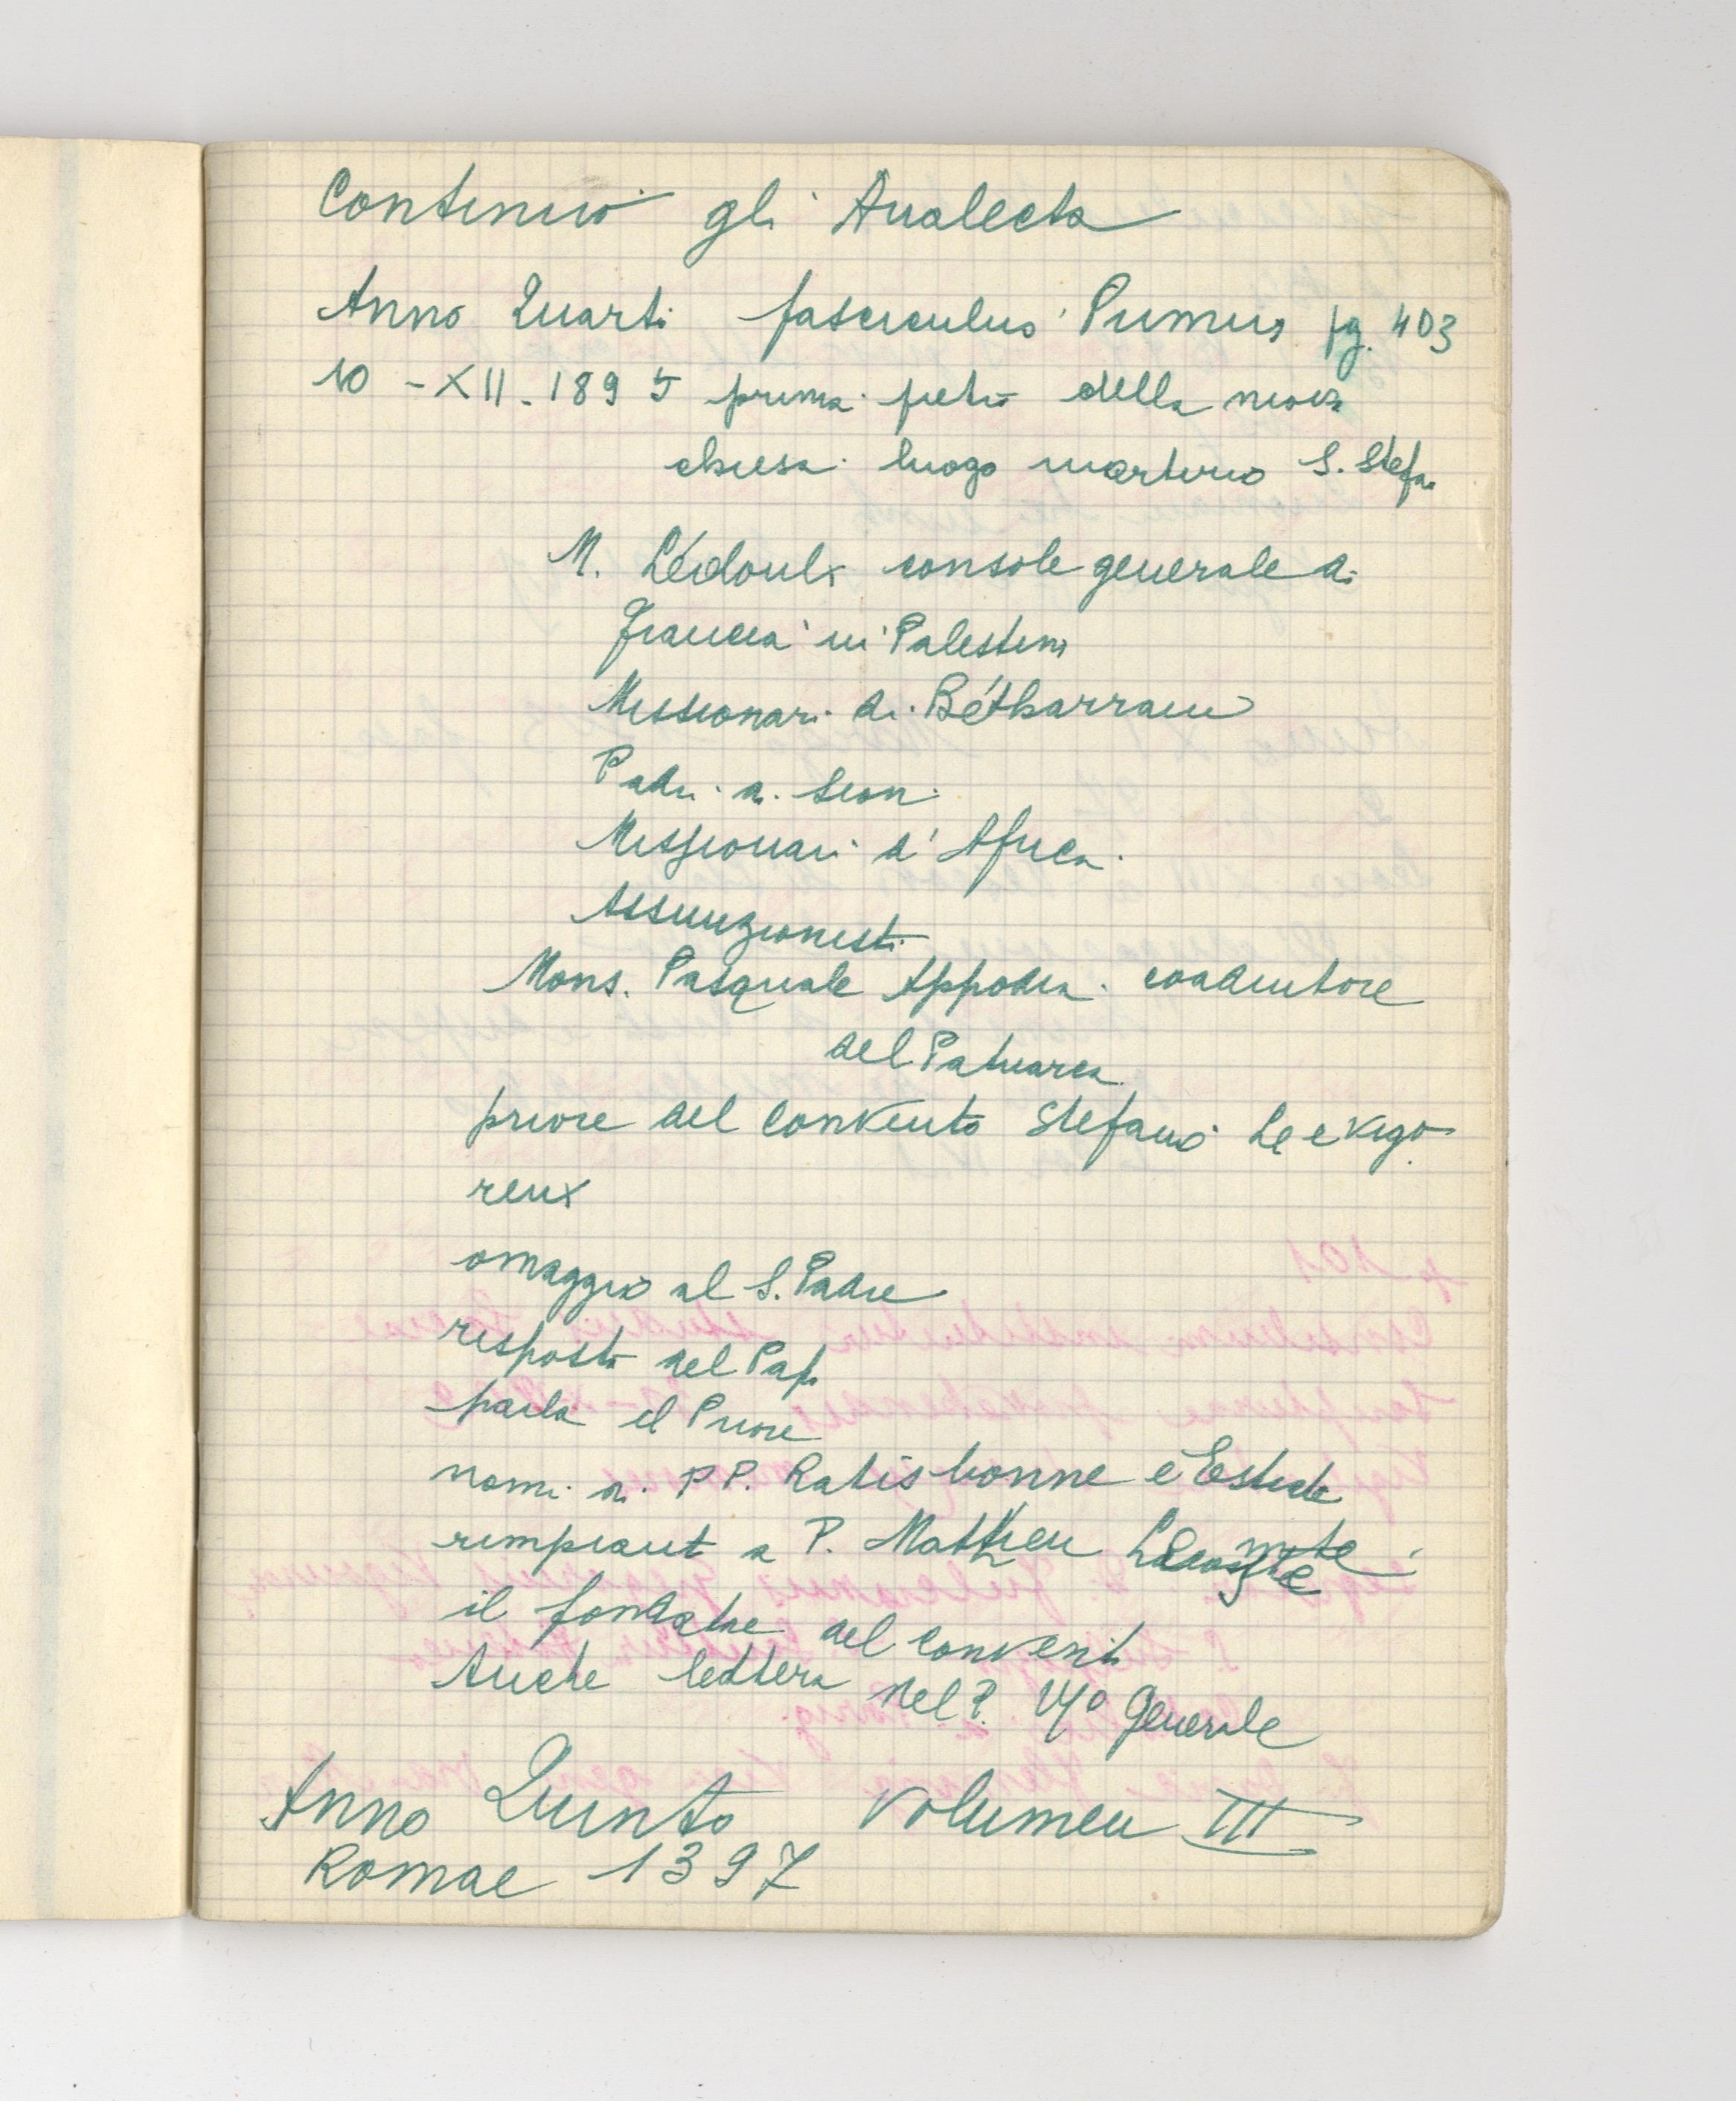 Continuo gli Analecta
Anno Quarti fasciculus Primus pg. 403
10 - XII - 1895 prima pietra della nuova
chiesa luogo martirio S. Stefa
M. Lédoulx console generale di
Francia in Palestina
Missionari di Bétharram
Padri di Sion
Missionari d'Africa
Assunzionisti
Mons. Pasquale Appodia coadiutore
del Patriarca
priore del Convento Stefano Le e Vigo
reux
omaggio al S. Padre
risposta del Papa
parla il Priore
nomi di PP. Ratisbonne e Estrate
rimpianti a P. Matthieu Lecomte
il fondatore del convento
Anche lettera del P. Vº Generale
Anno Quinto Volumen III
Romae 1397